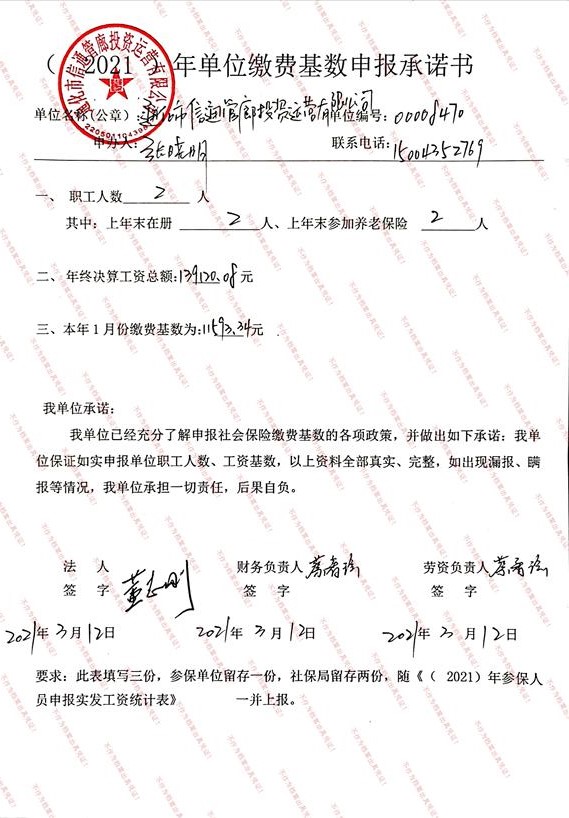 （ 2021 ）年单位缴费基数申报承诺书
通化市信通管廊投资运营有限公司
单位名称(公章)：通化市信通管廊投资运营有限公司 单位编号：00008470
申办人：张晓明 联系电话：15004352769
一、 职工人数 2 人
其中：上年末在册 2 人、上年末参加养老保险 2 人
二、年终决算工资总额:139120.08元
三、本年1月份缴费基数为:11593.34元
我单位承诺：
我单位已经充分了解申报社会保险缴费基数的各项政策，并做出如下承诺：我单
位保证如实申报单位职工人数、工资基数，以上资料全部真实、完整，如出现漏报、瞒
报等情况，我单位承担一切责任，后果自负。
法 人 财务负责人 劳资负责人
签 字 签 字 签 字
2021年3月12日 2021年3月12日 2021年3月12日
要求：此表填写三份，参保单位留存一份，社保局留存两份，随《（ 2021）年参保人
员申报实发工资统计表》 一并上报。